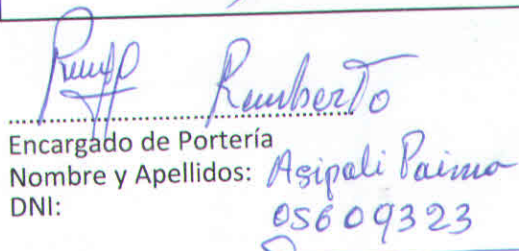 Remberto
Encargado de Portería
Nombre y Apellidos: Asipali Paima
DNI: 05609323